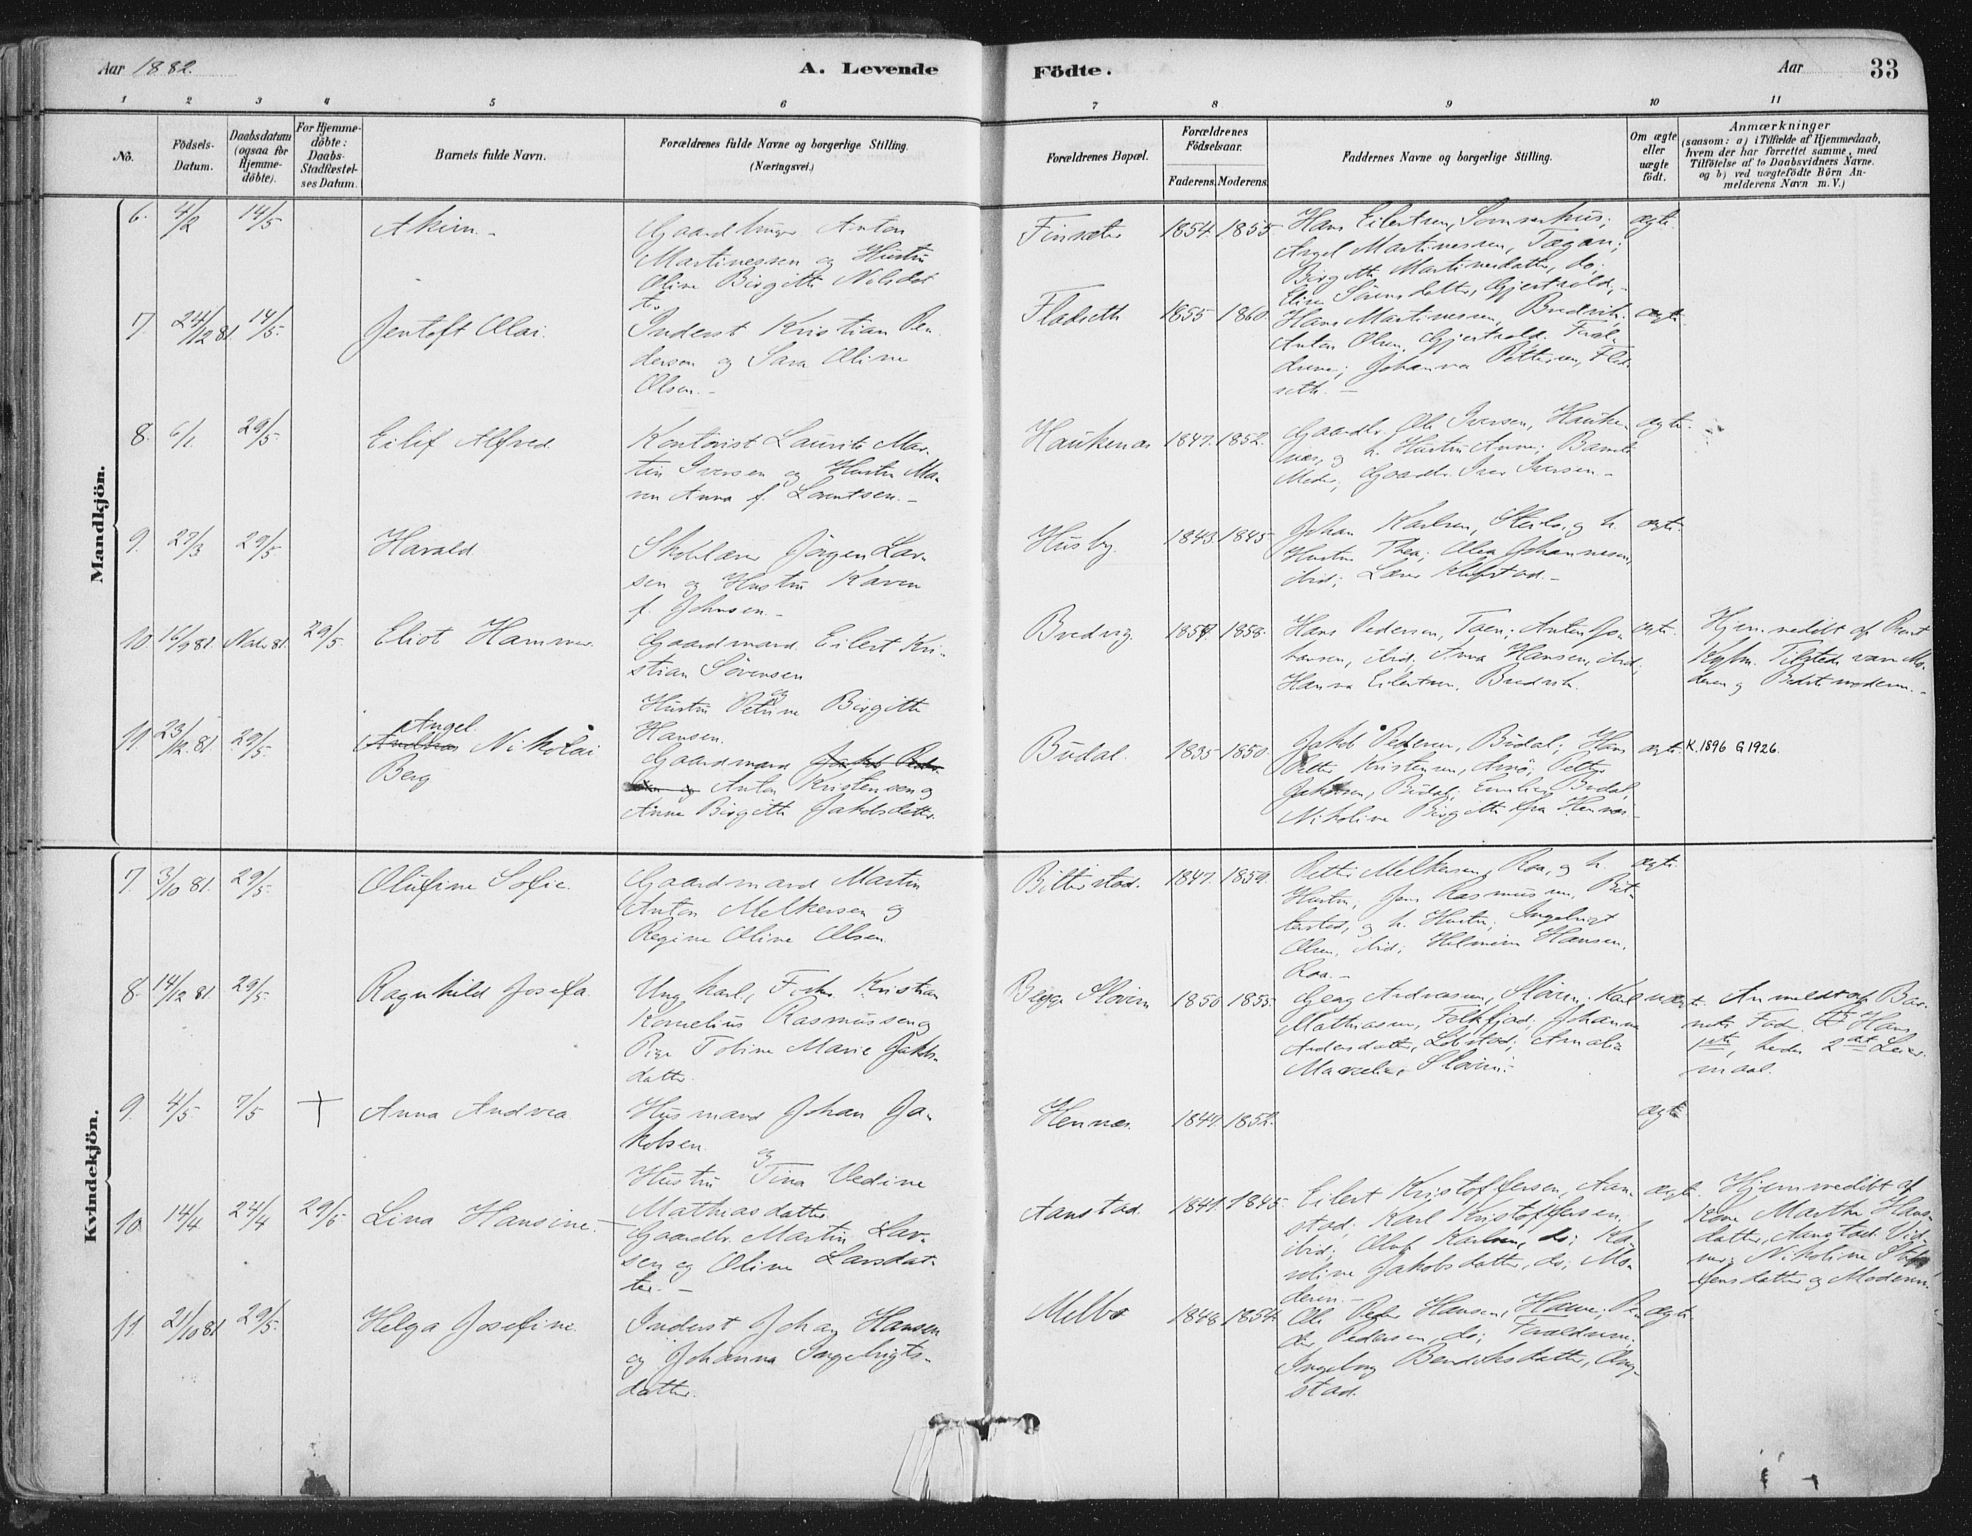 Aar 1882.
A. Levende Födte.
Aar
33
1 2 3 4 5 6 7 8 9 10 11
No.
Födsels-
Datum.
Daabsdatum
(ogsaa for
Hjemme-
döbte).
For Hjemme-
döbte:
Daabs-
Stadfæstel-
ses Datum.
Barnets fulde Navn.
Forældrenes fulde Navne og borgerlige Stilling.
(Næringsvei.)
Forældrenes Bopæl.
Forældrenes
Födselsaar.
Faderens. Moderens.
Faddernes Navne og borgerlige Stilling.
Om ægte
eller
uægte
födt.
Anmærkninger
(saasom: a) i Tilfælde af Hjemmedaab,
hvem der har forrettet samme, med
Tilföielse af to Daabsvidners Navne.
og b) ved uægtefödte Börn An-
melderens Navn m. V.)
Mandkjön.
6. 4/2 14/5
Akim.
Gaardbruger Anton
Martinessen og Hustru
Oline Birgitte Nilsdat
ter
Finsæter 1854 1855
Hans Eilertsen, Sommerhus;
Angel Martinessen, Tægan;
Birgitte Martinesdatter, do;
Elise Sörensdatter, Gjertvold.
ægte
7. 24/12 81 14/5
Jentoft Olai.
Inderst Kristian Pe
dersen og Sara Oline
Olsen.
Fladseth 1855 1860
Hans Martinessen, Bredvik;
Anton Olsen, Gjertvold. Foræl-
drene; Johanna Pettersen, Flad
seth.
ægte
8. 6/1. 29/5.
Eilif Alfred.
Kontorist Laurits Mar
tin Iversen og Hustru Ma
ren Anna f. Lorentsen.
Haukenæs 1847. 1852.
Gaardbr. Ole Iversen, Hauke
næs, og h. Hustru Anne;
Moder, Gaardbr. Iver Iversen.
ægte.
9. 27/3 29/5
Harald
Skolelærer Jörgen Lar
sen og Hustru Karen
f. Johnsen.
Husby. 1843. 1845.
Johan Karlsen, Steilo, og h.
Hustru Thea; Olea Johannesen,
ibid; Lærer Klefstad.
ægte.
10. 16/9 81 Natv. 81. 29/5.
Eliot Hammer.
Gaardmand Eilert Kri-
stian Sörensen
og
Hustru Petrine Birgitte
Hansen.
Bredvig. 1857. 1858.
Hans Pedersen, Taen; Anton Jo
hansen, ibid. Anna Hansen, ibid;
Hanna Eilertsen, Bredvik.
ægte.
Hjem.
Tilstede vare Mo-
deren og Bedstemoderen.
11. 23/12. 81 29/5.
Angel
Andreas Nikolai
Berg
Gaardmand Jakob Peder
sen og Anton Kristensen og
Anne Birgitte Jakobsdatter.
Budal. 1835 1850
Jakob Pedersen, Budal; Hans
Petter Kristensen, Arnö; Petter
Jakobsen, Budal; Emilie Budal,
Nikoline Birgitte fra Hennæs
ægte.
K. 1896 G 1926.
Kvindekjön.
7. 3/10 81. 29/5.
Olufine Sofie.
Gaardmand Martin
Anton Melkersen og
Regine Oline Olsen.
Bitterstad. 1847. 1859.
Petter Melkersen, Roa, og h.
Hustru, Jens Rasmussen, Bit-
terstad, og h. Hustru; Ingebrigt
Olsen, ibid; Helmine Hansen,
Roa.
ægte.
8. 14/12 81 29/5.
Ragnhild Josefa.
Ungkarl, Fisker Kristian
Kornelius Rasmussen og
Pige Tobine Marie Jakobs-
datter.
Begge Slovn 1850 1855.
Georg Andreasen, Slovn. Karl
Mathiasen, Falkfjord, Johanna
Andersdatter, Lobstad; Amalia
Marcelie, Slovn.
uægte.
Anmeldt af Bar
nets Fader. Hans
1ste, hendes 2det Leier
maal.
9. 4/5. 7/5 +
Anna Andrea
Husmand Johan Ja-
kobsen.
og
Hustru Tina Vedine
Mathiasdatter.
Hennæs. 1849. 1852.
ægte
10. 14/4 24/4 29/5
Lina Hansine.
Gaardbr. Martin Lar-
sen og Oline Larsdat-
ter.
Aanstad. 1841. 1845.
Eilert Kristoffersen, Aan-
stad, Karl Kristoffersen,
ibid; Oluf Karlsen, do; Ka-
roline Jakobsdatter, do; Mo-
deren.
ægte.
Hjemmedöbt af
Kone Marthe Hans-
datter, Aanstad. Vid-
ner: Nikoline Stef
fensdatter og Moderen.
11 21/10 81 29/5.
Helga Josefine.
Inderst Johan Hansen
og Johanna Ingebrigts-
datter.
Melbo 1848 1854.
Ole Peder Hansen, Haune; Pe
der Pedersen, do; Forældrene;
Ingeborg Bendiksdatter, Ang-
stad.
ægte